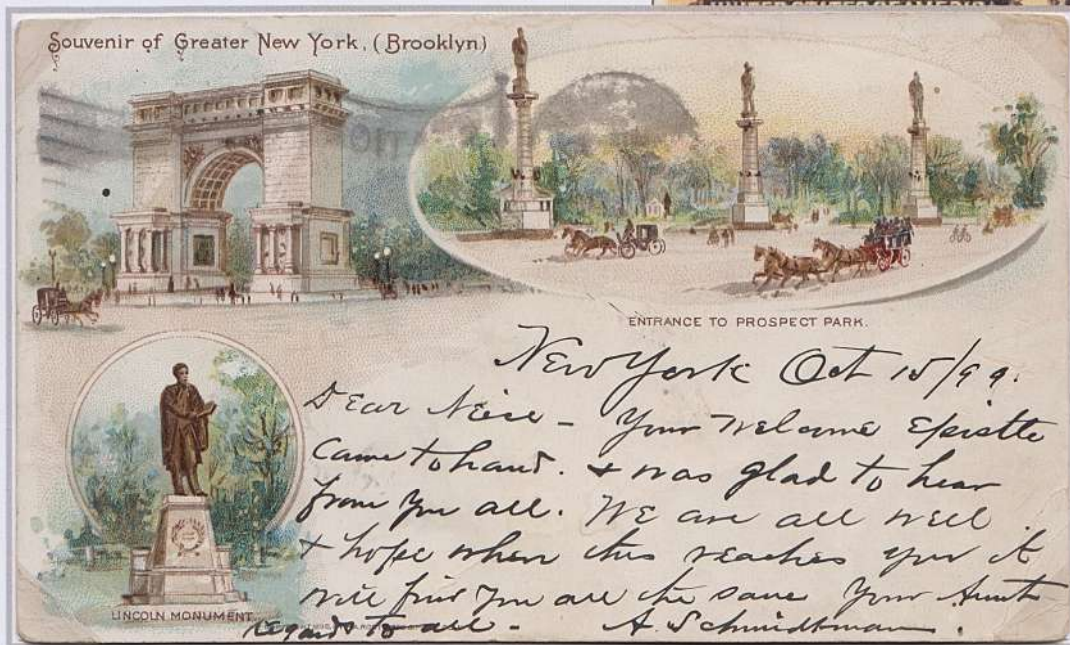 UNITED STATES OF AMERICA
Souvenir of Greater New York, (Brooklyn)
ENTRANCE TO PROSPECT PARK.
LINCOLN MONUMENT
New York Oct 15/99.
Dear Neice - Your welcome Epistle
Came to hand. & was glad to hear
from you all. We are all well
& hope when this reaches you it
will find you all the same Your Aunt
Regards to all - A. Schmidtman.